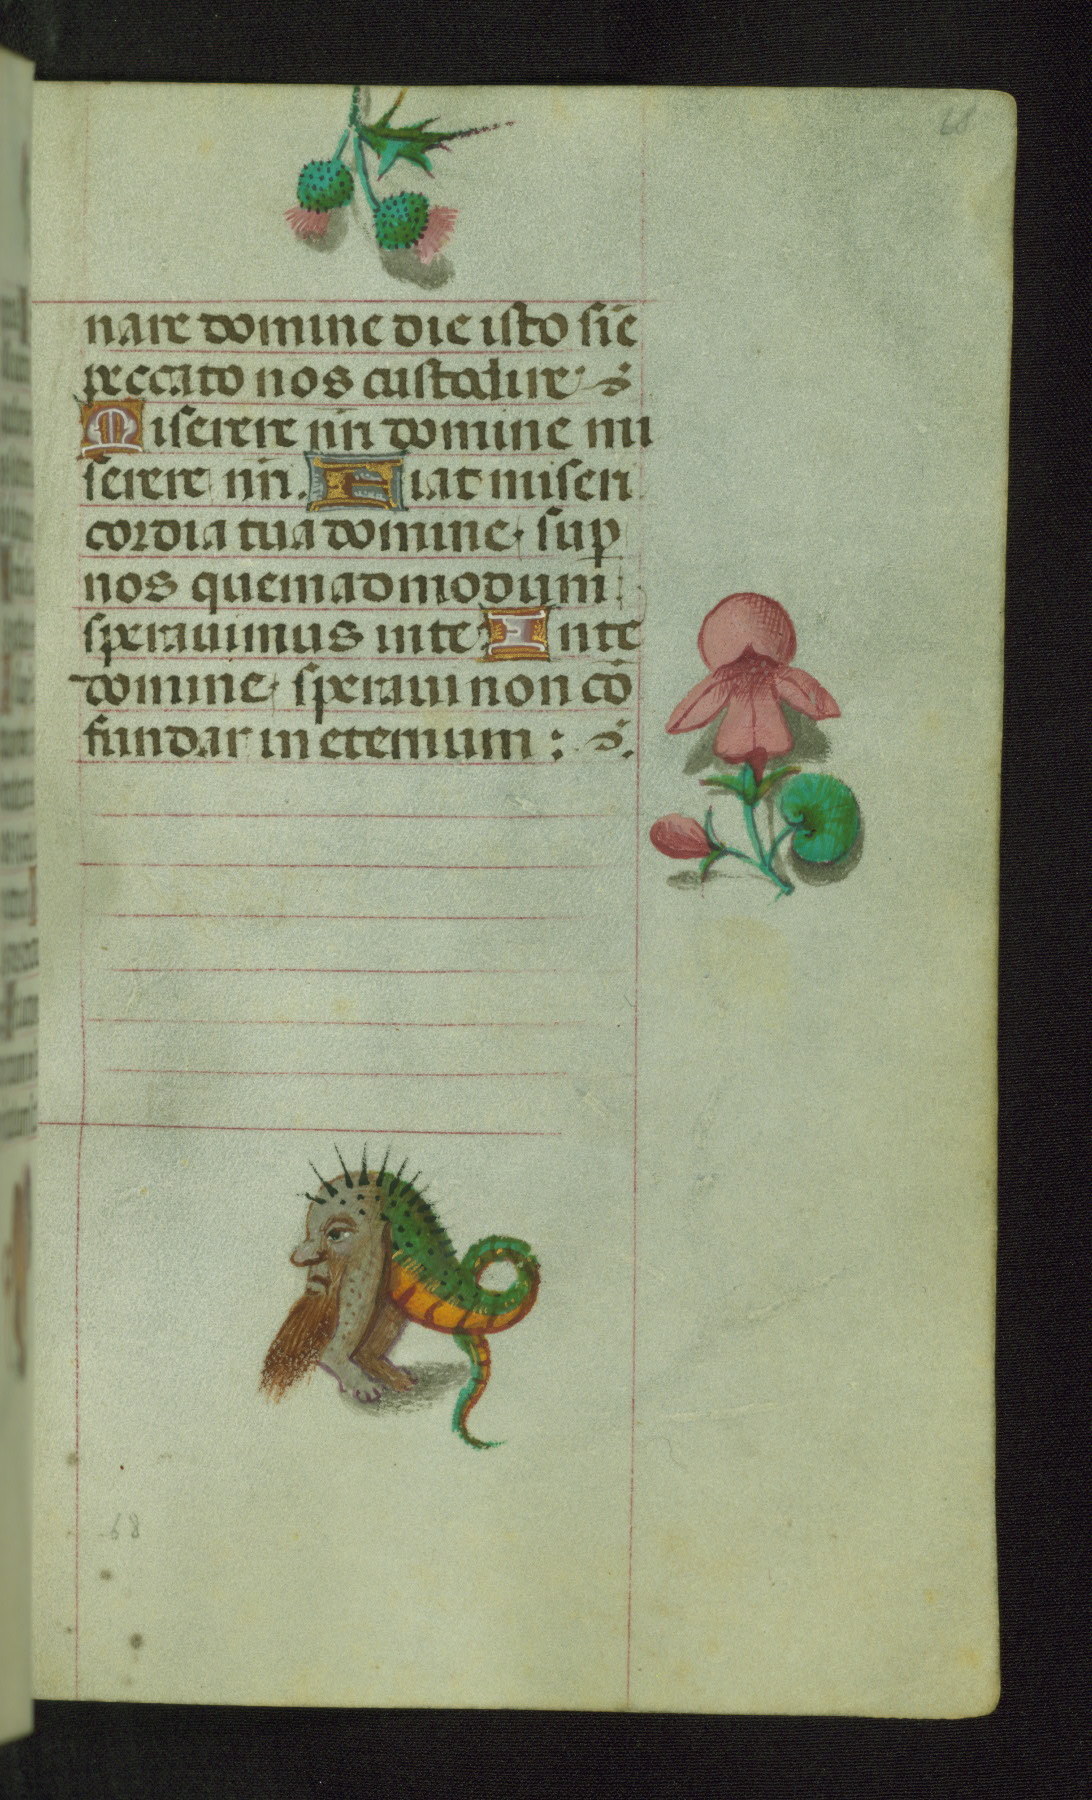 68
nare domine die isto sin̄e
peccato nos custodire:
Miserere nr̄i domine mi
serere nr̄i. Fiat miseri
cordia tua domine, sup̱
nos quemadmodum
speravimus in te: In te
domine, speraui non cō
fundar in eternum :
68